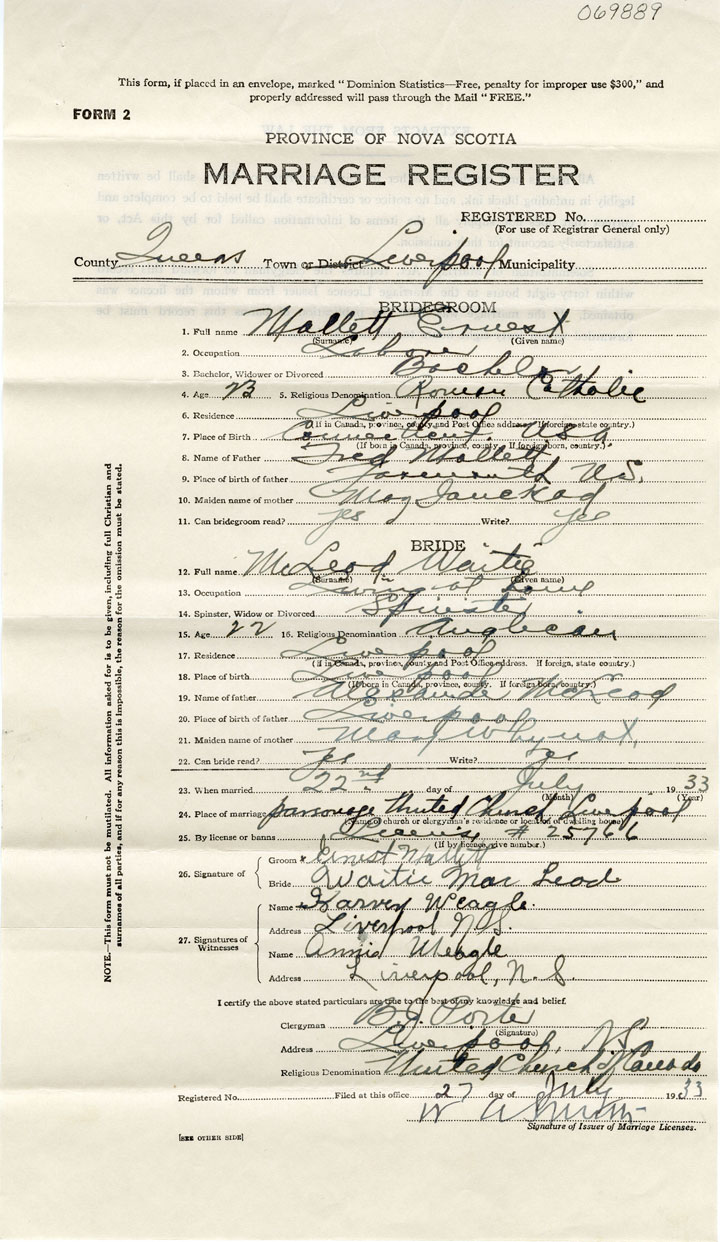 069889
This form, if placed in an envelope, marked "Dominion Statistics—Free, penalty for improper use $300," and
properly addressed will pass through the Mail "FREE."
FORM 2
PROVINCE OF NOVA SCOTIA
MARRIAGE REGISTER
REGISTERED No.
(For use of Registrar General only)
County Queens Town or District Liverpool Municipality
BRIDEGROOM
1. Full name Mallett Ernest
(Surname) (Given name)
2. Occupation Labourer
3. Bachelor, Widower or Divorced Bachelor
4. Age 23 5. Religious Denomination Roman Catholic
6. Residence Liverpool
(If in Canada, province, county and Post Office address. If foreign, state country.)
7. Place of Birth U.S.A.
(If born in Canada, province, county. If foreign born, country.)
8. Name of Father Fred Mallett
9. Place of birth of father Yarmouth N.S.
10. Maiden name of mother May
11. Can bridegroom read? yes Write? yes
BRIDE
12. Full name McLeod Waitie
(Surname) (Given name)
13. Occupation Living at home
14. Spinster, Widow or Divorced Spinster
15. Age 22 16. Religious Denomination Anglican
17. Residence Liverpool
(If in Canada, province, county and Post Office address. If foreign, state country.)
18. Place of birth Liverpool
(If born in Canada, province, county. If foreign born, country.)
19. Name of father McLeod
20. Place of birth of father Liverpool
21. Maiden name of mother Mary Whynot
22. Can bride read? Yes Write? Yes
23. When married 22nd day of July 1933
(Month) (Year)
24. Place of marriage parsonage United Church Liverpool
(Name of church or clergyman's residence or location of dwelling house)
25. By license or banns License # 25766
(If by licence, give number.)
26. Signature of
Groom Ernest Mallett
Bride Waitie Mac Leod
27. Signatures of
Witnesses
Name Harvey Weagle.
Address Liverpool N.S.
Name Annie Weagle
Address Liverpool, N.S.
I certify the above stated particulars are true to the best of my knowledge and belief.
Clergyman B.J. Porter
(Signature)
Address Liverpool, N.S.
Religious Denomination United Church of Canada
Registered No. Filed at this office 27 day of July 1933
Signature of Issuer of Marriage Licenses.
[SEE OTHER SIDE]
NOTE.—This form must not be mutilated. All information asked for is to be given, including full Christian and
surnames of all parties, and if for any reason this is impossible, the reason for the omission must be stated.